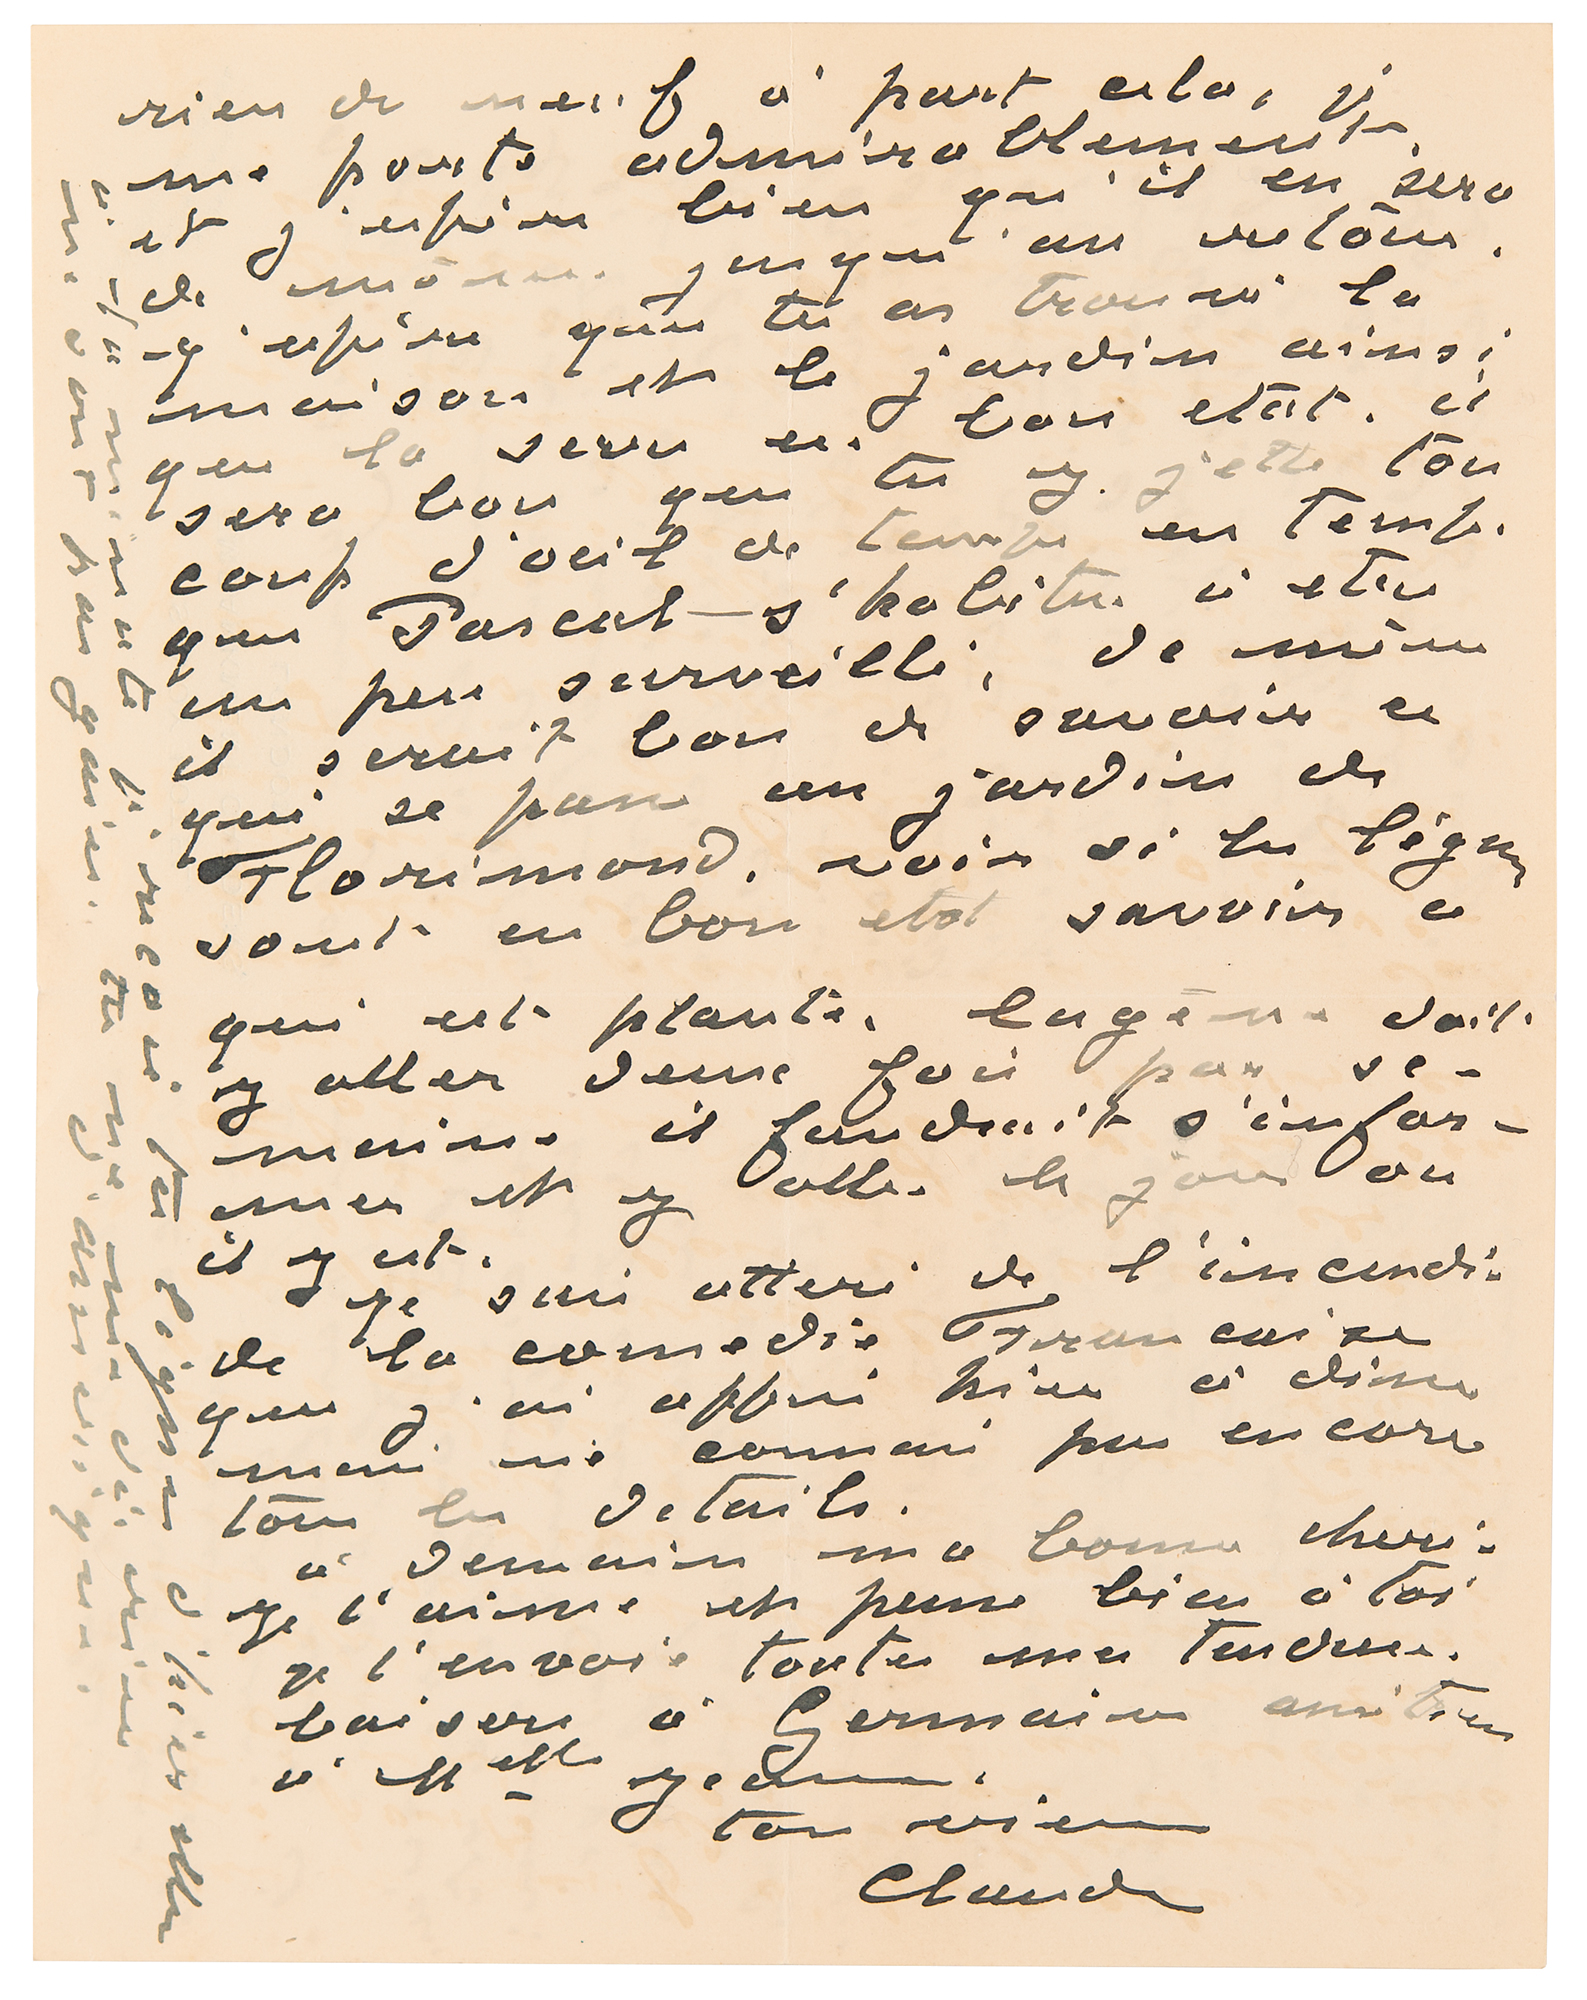 rien de neuf à part cela, je
me porte admirablement.
et j'espère bien qu'il en sera
de même jusqu'au retour.
j'espère que tu as trouvé la
maison et le jardin ainsi
que la serre en bon état. il
sera bon que tu y jette ton
coup d'oeil de temps en temps.
que Fancul s'habitue à etre
un peu surveillé, de même
il serait bon de savoir ce
qui se passe au jardin de
Florimond, voir si les légumes
sont en bon etat savoir ce
qui est planté, Eugène doit
y aller deux fois par se-
maine il faudrait s'infor-
mer et y aller le jour ou
il y est.
je suis atterré de l'incendie
de la comedie Française
que j'ai appris hier à diner
mais ne connais pas encore
tous les details.
à demain ma bonne cherie
je t'aime et pense bien à toi
je t'envoie toutes mes tendresses.
baisers à Germaine amitiés
à
ton vieux
Claude